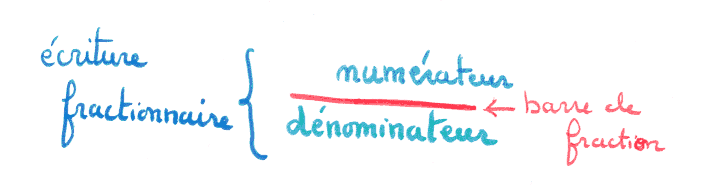 écriture
fractionnaire
numérateur
dénominateur
barre de
fraction